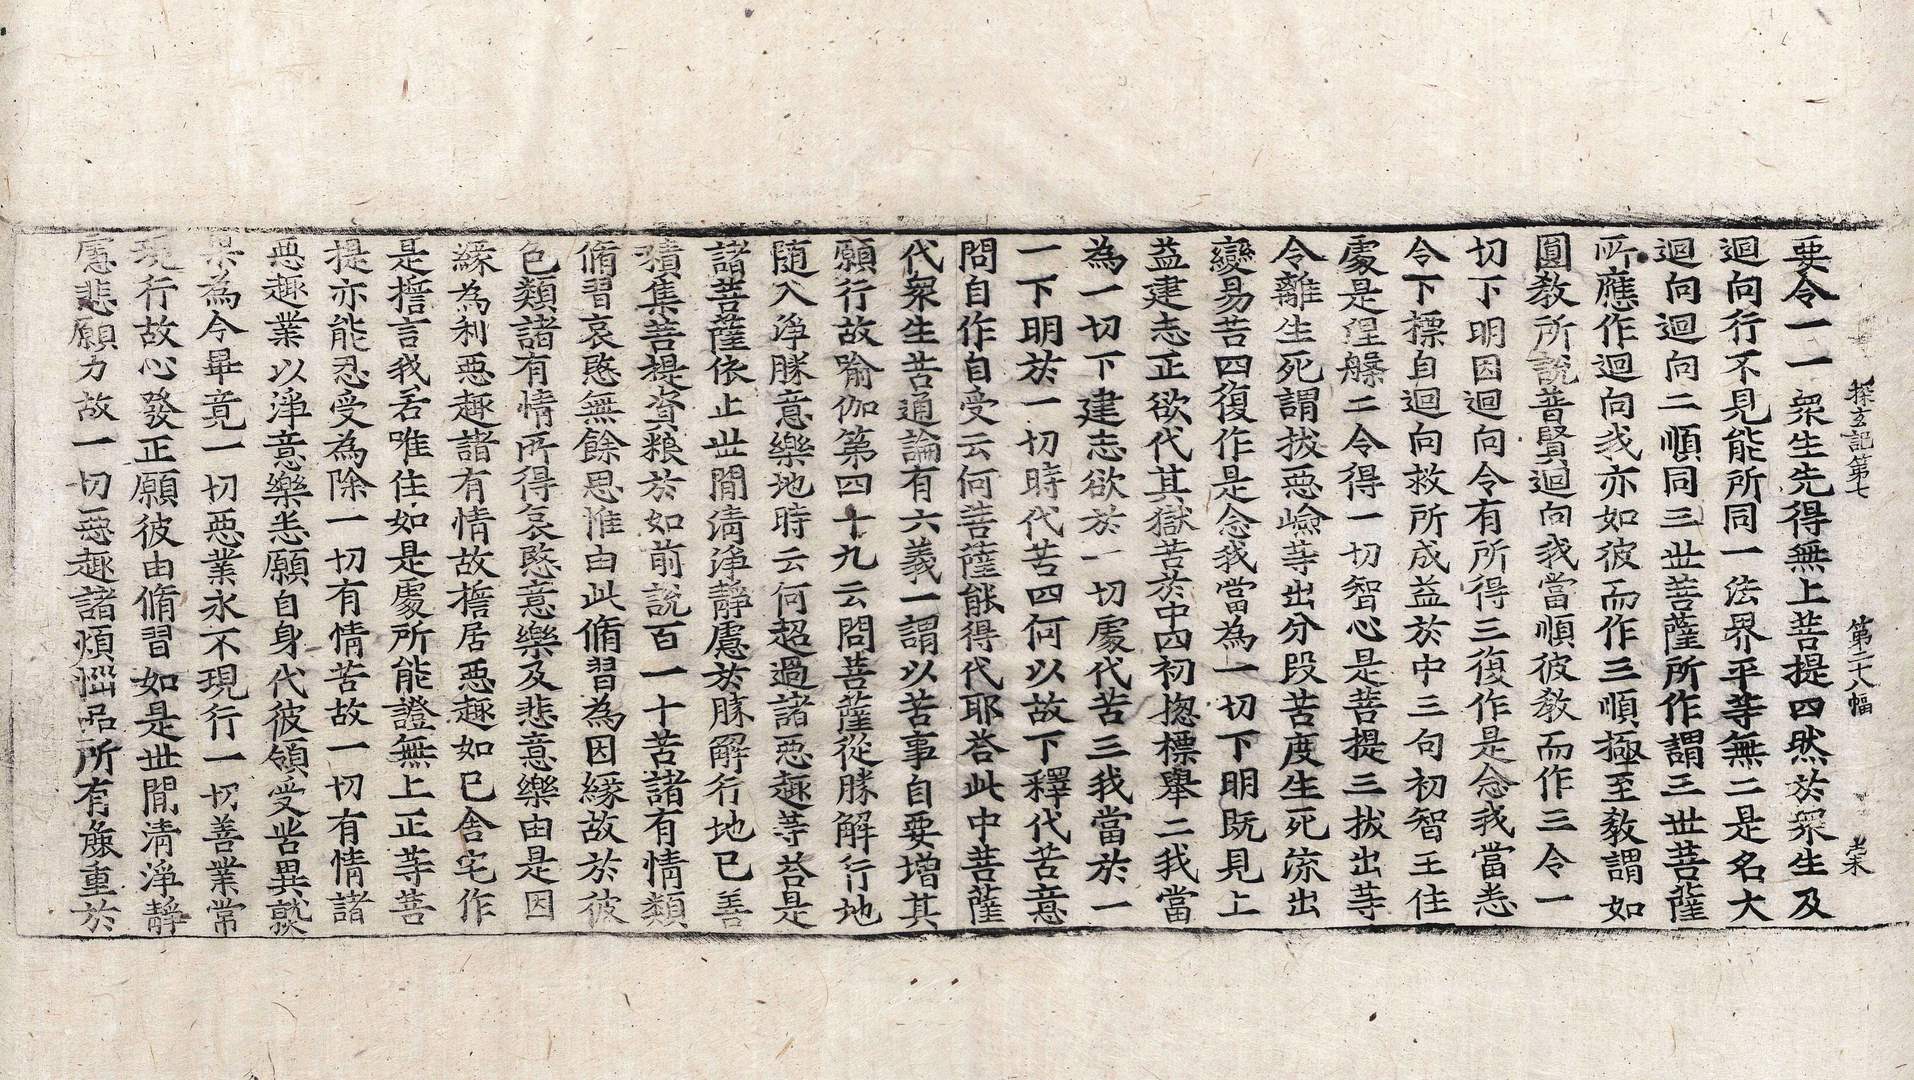 探玄記第七 第二十八幅 老宋
要令一一衆生先得無上菩提四然於衆生及
迴向行不見能所同一法界平等無二是名大
迴向迴向二順同三世菩薩所作謂三世菩薩
所應作迴向我亦如彼而作三順極至教謂如
圓教所說普賢迴向我當順彼教而作三令一
切下明因迴向令有所得三復作是念我當悉
令下摽自迴向救所成益於中三句初智王住
處是湼槃二令得一切智心是菩提三拔出等
令離生死謂拔惡嶮等出分段苦度生死流出
變易苦四復作是念我當為一切下明既見上
益建志正欲代其獄苦於中四初揔標舉二我當
為一切下建志欲於一切處代苦三我當於一
一下明於一切時代苦四何以故下釋代苦意
問自作自受云何菩薩能得代耶荅此中菩薩
代衆生苦通論有六義一謂以苦事自要增其
願行故瑜伽第四十九云問菩薩從勝解行地
隨入淨勝意樂地時云何超過諸惡趣等荅是
諸菩薩依止世間清淨靜慮於勝解行地已善
積集菩提資粮於如前說百一十苦諸有情類
脩習哀愍無餘思惟由此脩習為因緣故於彼
色類諸有情所得哀愍意樂及悲意樂由是因
緣為利惡趣諸有情故擔居惡趣如已舍宅作
是擔言我若唯住如是處所能證無上正等菩
提亦能忍受為除一切有情苦故一切有情諸
惡趣業以淨意樂悉願自身代彼領受苦異熟
果為令畢竟一切惡業永不現行一切善業常
現行故心發正願彼由脩習如是世間清淨靜
慮悲願力故一切惡趣諸煩惱品所有麁重於